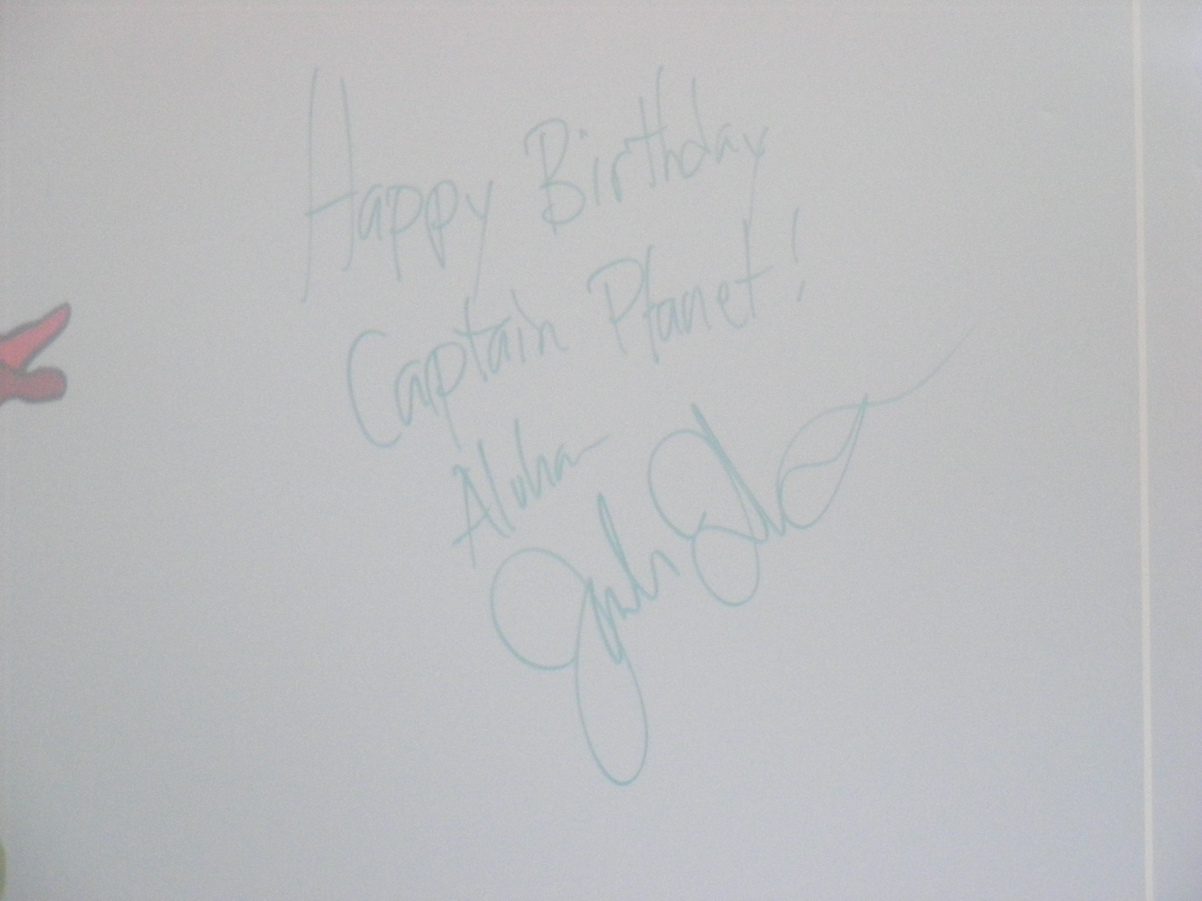 Happy Birthday
Captain Planet!
Aloha